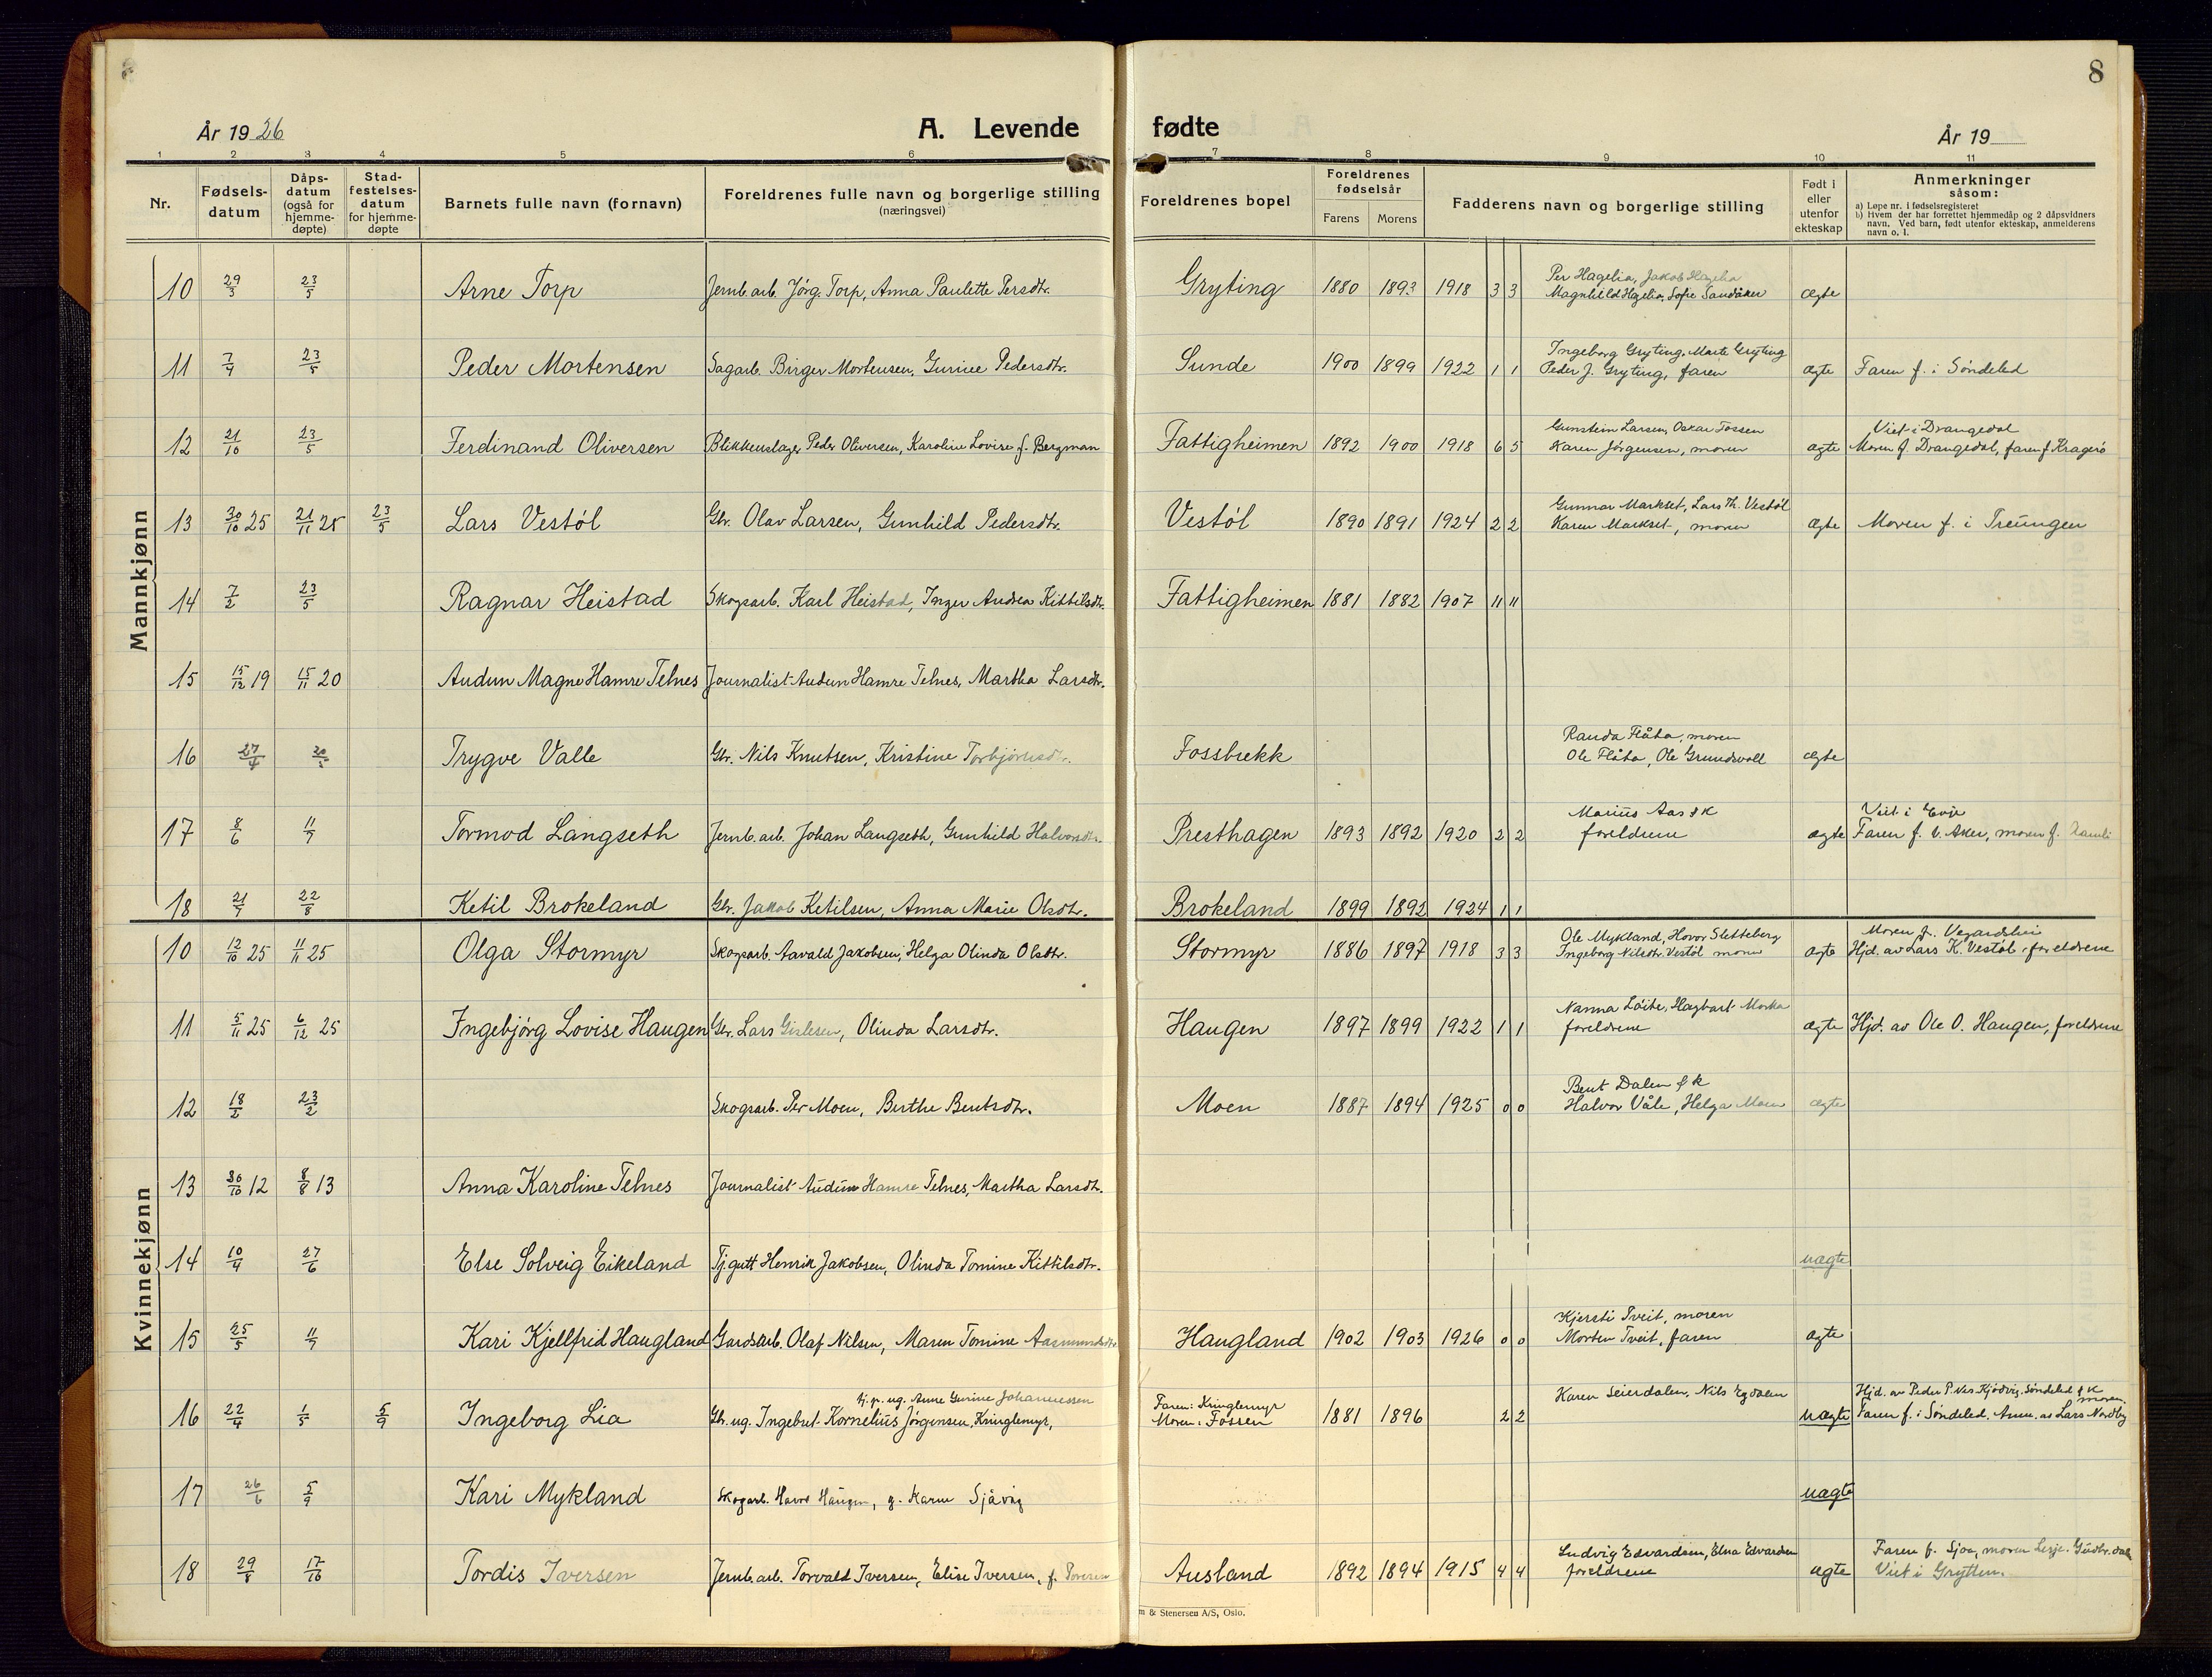 8
År 1926 A. Levende fødte År 19
1 2 3 4 5 6 7 8 9 10 11
Nr. Fødsels-datum Dåps-datum (også for hjemme-døpte) Stad-festelses-datum for hjemme-døpte Barnets fulle navn (fornavn) Foreldrenes fulle navn og borgerlige stilling (næringsvei) Foreldrenes bopel Foreldrenes fødselsår Farens Morens Fadderens navn og borgerlige stilling Født i eller utenfor ekteskap Anmerkninger såsom:
a) Løpe nr. i fødselsregisteret
b) Hvem der har forrettet hjemmedåp og 2 dåpsvidners navn. Ved barn, født utenfor ekteskap, anmelderens navn o. l.
Mannkjønn
10 29/3 23/5 Arne Torp Jernb.arb. Jörg. Torp, Anna Paulette Persdtr. Gryting 1880 1893 1918 3 3 Per Hagelia, Jakob Hagelia
Magnhild Hagelia, Sofie Sandåker ægte
11 7/4 23/5 Peder Mortensen Sagarb. Birger Mortensen, Gurine Pedersdtr. Sunde 1900 1899 1922 1 1 Ingeborg Gryting, Marte Gryting
Peder J. Gryting, faren ægte Faren f. i Söndeled
12 21/10 23/5 Ferdinand Oliversen Blikkenslager Peder Oliversen, Karoline Lovise f. Bergman Fattigheimen 1892 1900 1918 6 5 Gunstein Larsen, Oskar Tossen
Karen Jörgensen, moren ægte Viet i Drangedal
Moren f. Drangedal, faren f. Kragerö
13 30/10 25 21/11 25 23/5 Lars Vestöl Gbr. Olav Larsen, Gunhild Pedersdtr. Vestöl 1890 1891 1924 2 2 Gunnar Markset, Lars Th. Vestöl
Karen Markset, moren ægte Moren f. i Treungen
14 7/2 23/5 Ragnar Heistad Skogsarb. Karl Heistad, Inger Andrea Kittilsdtr. Fattigheimen 1881 1882 1907 11 11
15 15/12 19 15/11 20 Audun Magne Hamre Telnes Journalist Audun Hamre Telnes, Martha Larsdtr.
16 27/4 Trygve Valle Gbr. Nils Knutsen, Kristine Torbjörnsdtr. Fossbrekk Randa Flåta, moren
Ole Flåta, Ole Grundsvoll ægte
17 8/6 11/7 Tormod Langseth Jernb.arb. Johan Langseth, Gunhild Halvorsdtr. Presthagen 1893 1892 1920 2 2 Marius Aas & K
foreldrene ægte Viet i Evje
Faren f. V. Aker, moren f.
18 21/7 22/8 Ketil Brokeland Gbr. Jakob Ketilsen, Anna Marie Olsdtr. Brokeland 1899 1892 1924 1 1
Kvinnekjønn
10 12/10 25 11/11 25 Olga Stormyr Skogsarb. Tarvald Jakobsen, Helga Olinda Olsdtr. Stormyr 1886 1897 1918 3 3 Ole Mykland, Hovor Sletteberg
Ingeborg Nilsdtr. Vestöl moren ægte Moren f. Vegardshei
Hjd. av Lars K. Vestöl, foreldrene
11 5/11 25 6/12 25 Ingebjörg Lovise Haugen Gbr. Lars Gislesen, Olinda Larsdtr. Haugen 1897 1899 1922 1 1 Nanna Löite, Hagbart Morka
foreldrene ægte Hjd. av Ole O. Haugen, foreldrene
12 18/2 23/2 Skogsarb. Per Moen, Berthe Bentsdtr. Moen 1887 1894 1925 0 0 Bent Dalen & K
Halvor Våle, Helga Moen ægte
13 30/10 12 8/8 13 Anna Karoline Telnes Journalist Audun Hamre Telnes, Martha Larsdtr.
14 10/4 27/6 Else Solveig Eikeland Tj.gutt Henrik Jakobsen, Olinda Tomine Kittilsdtr. uægte
15 25/5 11/7 Kari Kjellfrid Haugland Gardsarb. Olaf Nilsen, Maren Tomine Aasmundsdtr. Haugland 1902 1903 1926 0 0 Kjersti Tveit, moren
Morten Tveit, faren ægte
16 22/4 1/5 5/9 Ingeborg Lia tj.p. ug. Anne Gurine Johannessen
Gbr. ug. Ingebret Kornelius Jörgensen, Kringlemyr, Faren: Kringlemyr
Moren: Fossen 1881 1896 2 2 Karen Seierdalen, Nils Egdalen uægte Hjd. av Peder P. Ves Kjödvig, Söndeled & K moren,
Faren f. i Söndeled. Anm. av Lars Nordby
17 26/6 5/9 Kari Mykland Skogarb. Havor Haugen, g. Karen Sjåvåg uægte
18 29/8 17/10 Tordis Iversen Jernb.arb. Torvald Iversen, Elise Iversen, f. Ausland 1892 1894 1915 4 4 Ludvig Edvardsen, Elna Edvardsen
foreldrene ægte Faren f. Sjoa, moren Lesje. Gudbr.dal
Viet i Grytten.
m & Stenersen A/S, Oslo.